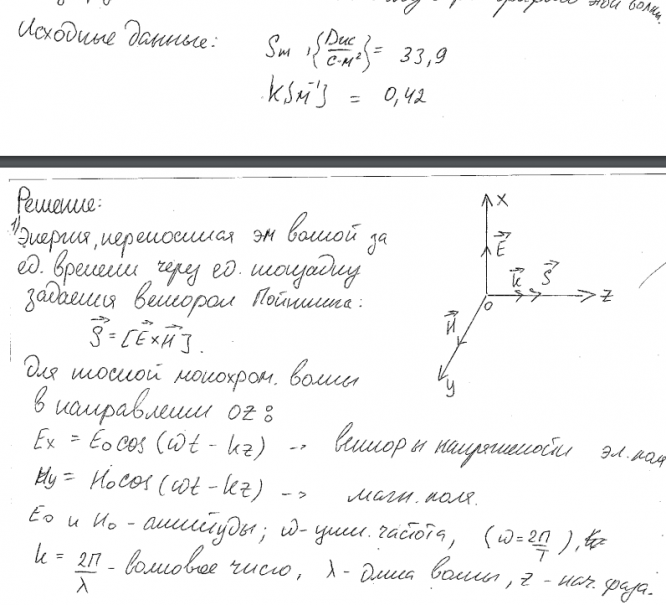 этой волны.
Исходные данные:
Sm, {Дж/с·м²} = 33,9
k{м⁻¹} = 0,42
Решение:
1) Энергия, переносимая эм волной за
ед. времени через ед. площадку
задается вектором Пойнтинга:
S⃗ = [E⃗×H⃗].
Для плоской монохром. волны
в направлении OZ:
Ex = E₀cos(ωt - kz) -> векторы напряженности эл. пол
Hy = H₀cos(ωt - kz) -> магн. поля.
E₀ и H₀ - амплитуды; ω - цикл. частота, (ω = 2π/T),
k = 2π/λ - волновое число, λ - длина волны, z - нач. фаза.
X
E⃗
k⃗ S⃗
0
Z
H⃗
Y